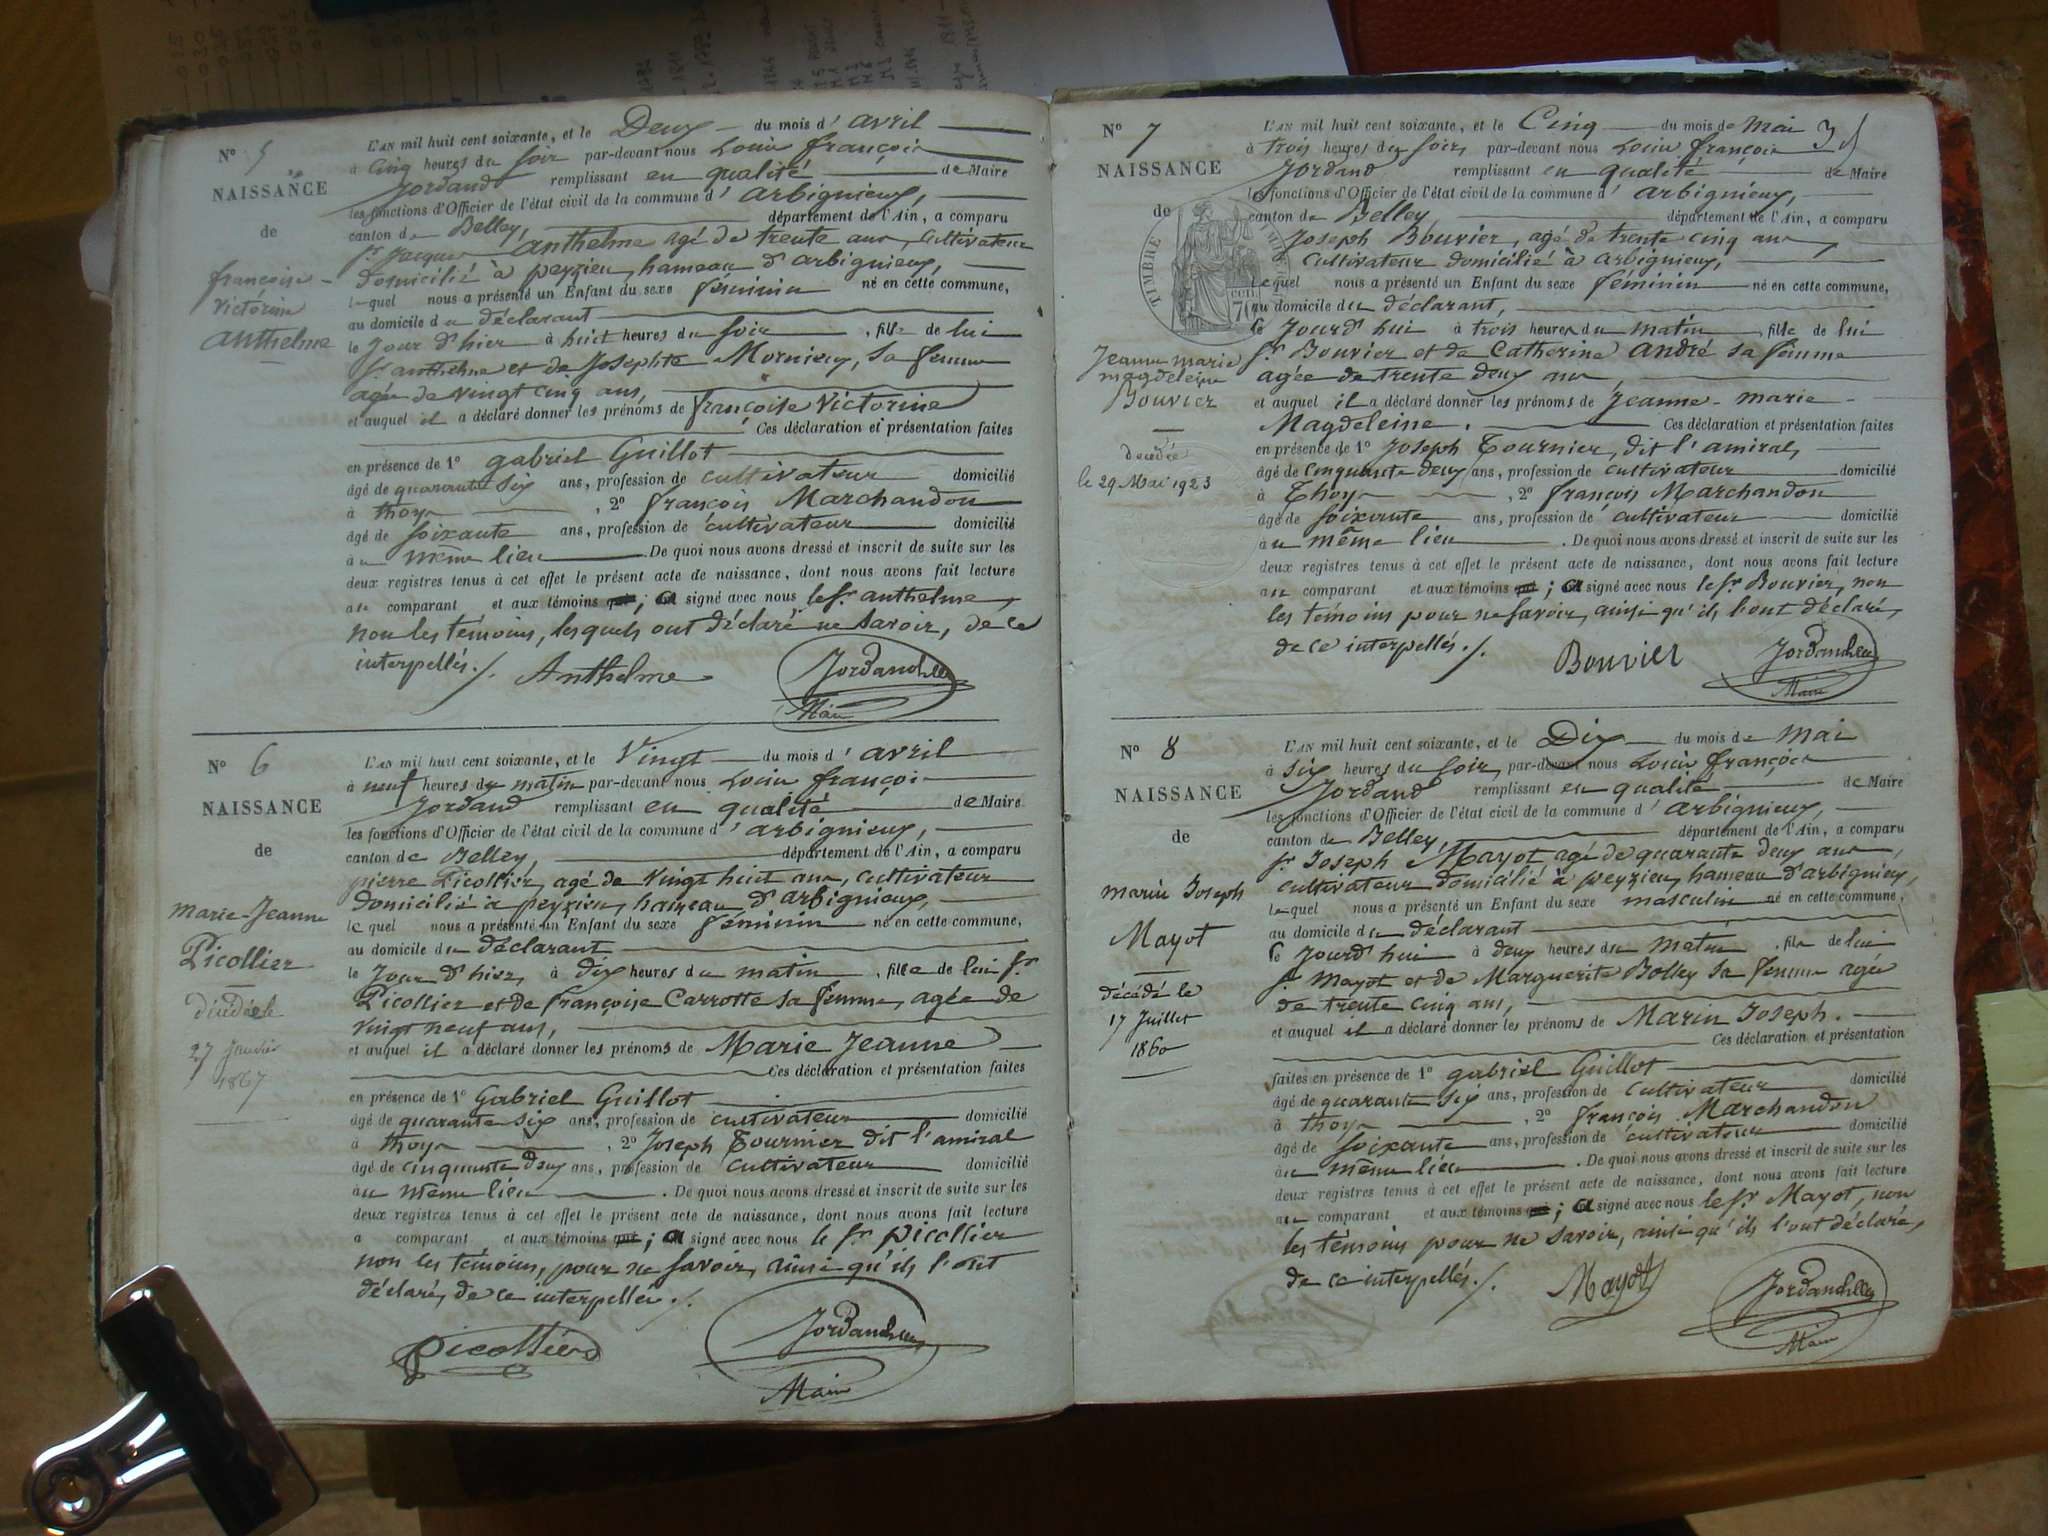 N° 5
NAISSANCE
de
françoise
victorine
anthelme
L'AN mil huit cent soixante, et le Deux du mois d' avril
à cinq heures du soir par-devant nous Louis françois
Jordand remplissant en qualité de Maire
les fonctions d'Officier de l'état civil de la commune d' arbignieux,
canton de Belley, département de l'Ain, a comparu
sr. Jacques anthelme agé de trente ans, cultivateur
domicilié à peyzieu, hameau d'arbignieux,
lequel nous a présenté un Enfant du sexe féminin né en cette commune,
au domicile du déclarant
le Jour d'hier à huit heures du soir, fille de lui
sr. anthelme et de Josephte Mornieux, sa femme
agée de vingt cinq ans,
et auquel il a déclaré donner les prénoms de françoise victorine
Ces déclaration et présentation faites
en présence de 1° gabriel Guillot
âgé de quarante six ans, profession de cultivateur domicilié
à thoys, 2° françois Marchandon
âgé de soixante ans, profession de cultivateur domicilié
au même lieu. De quoi nous avons dressé et inscrit de suite sur les
deux registres tenus à cet effet le présent acte de naissance, dont nous avons fait lecture
au comparant et aux témoins qui; a signé avec nous le sr. anthelme,
non les témoins, lesquels ont déclaré ne savoir, de ce
interpellés./. Anthelme Jordand
Maire
N° 6
NAISSANCE
de
Marie-Jeanne
Picollier
décédée le
27 Janvier
1867
L'AN mil huit cent soixante, et le Vingt du mois d' avril
à neuf heures du matin par-devant nous Louis françois
Jordand remplissant en qualité de Maire
les fonctions d'Officier de l'état civil de la commune d' arbignieux,
canton de Belley, département de l'Ain, a comparu
pierre Picollier, agé de vingt huit ans, cultivateur
domicilié à peyzieu, hameau d'arbignieux,
lequel nous a présenté un Enfant du sexe féminin né en cette commune,
au domicile du déclarant
le Jour d'hier, à dix heures du matin, fille de lui sr.
Picollier et de françoise Carrotte sa femme, agée de
vingt neuf ans,
et auquel il a déclaré donner les prénoms de Marie Jeanne
Ces déclaration et présentation faites
en présence de 1° Gabriel Guillot
âgé de quarante six ans, profession de cultivateur domicilié
à thoys, 2° Joseph Tournier dit l'amiral
âgé de cinquante deux ans, profession de cultivateur domicilié
au même lieu. De quoi nous avons dressé et inscrit de suite sur les
deux registres tenus à cet effet le présent acte de naissance, dont nous avons fait lecture
a comparant et aux témoins qui; a signé avec nous le sr. picollier
non les témoins, pour ne savoir, ainsi qu'ils l'ont
déclaré, de ce interpellés./.
Picollier Jordand
Maire
N° 7
NAISSANCE
de
TIMBRE
Jeanne marie
magdeleine
Bouvier
décédée
le 29 Mai 1923
L'AN mil huit cent soixante, et le Cinq du mois de mai
à trois heures du soir, par-devant nous Louis françois
Jordand remplissant en qualité de Maire
les fonctions d'Officier de l'état civil de la commune d' arbignieux,
canton de Belley, département de l'Ain, a comparu
Joseph Bouvier, agé de trente cinq ans,
cultivateur domicilié à arbignieux,
lequel nous a présenté un Enfant du sexe féminin né en cette commune,
au domicile du déclarant,
le Jourd'hui à trois heures du matin, fille de lui
sr. Bouvier et de Catherine andré sa femme
agée de trente deux ans
et auquel il a déclaré donner les prénoms de Jeanne-marie-
Magdeleine. Ces déclaration et présentation faites
en présence de 1° Joseph Tournier, dit l'amiral,
âgé de cinquante deux ans, profession de cultivateur domicilié
à Thoys, 2° françois Marchandon
âgé de soixante ans, profession de cultivateur domicilié
au même lieu. De quoi nous avons dressé et inscrit de suite sur les
deux registres tenus à cet effet le présent acte de naissance, dont nous avons fait lecture
au comparant et aux témoins qui; a signé avec nous le sr. Bouvier, non
les témoins pour ne savoir, ainsi qu'ils l'ont déclaré,
de ce interpellés./. Bouvier Jordand
Maire
N° 8
NAISSANCE
de
marin Joseph
Mayot
décédé le
17 Juillet
1860
L'AN mil huit cent soixante, et le Dix du mois de mai
à six heures du soir, par-devant nous Louis françois
Jordand remplissant en qualité de Maire
les fonctions d'Officier de l'état civil de la commune d' arbignieux,
canton de Belley, département de l'Ain, a comparu
sr. Joseph Mayot agé de quarante deux ans,
cultivateur domicilié à peyzieu, hameau d'arbignieux,
lequel nous a présenté un Enfant du sexe masculin né en cette commune,
au domicile du déclarant
le Jourd'hui à deux heures du matin, fils de lui
sr. Mayot et de Marguerite Bolley sa femme agée
de trente cinq ans,
et auquel il a déclaré donner les prénoms de Marin Joseph.
Ces déclaration et présentation
faites en présence de 1° gabriel Guillot
âgé de quarante six ans, profession de cultivateur domicilié
à thoys, 2° françois Marchandon
âgé de soixante ans, profession de cultivateur domicilié
au même lieu. De quoi nous avons dressé et inscrit de suite sur les
deux registres tenus à cet effet le présent acte de naissance, dont nous avons fait lecture
au comparant et aux témoins qui; a signé avec nous le sr. Mayot, non
les témoins pour ne savoir, ainsi qu'ils l'ont déclaré,
de ce interpellés./. Mayot Jordand
Maire